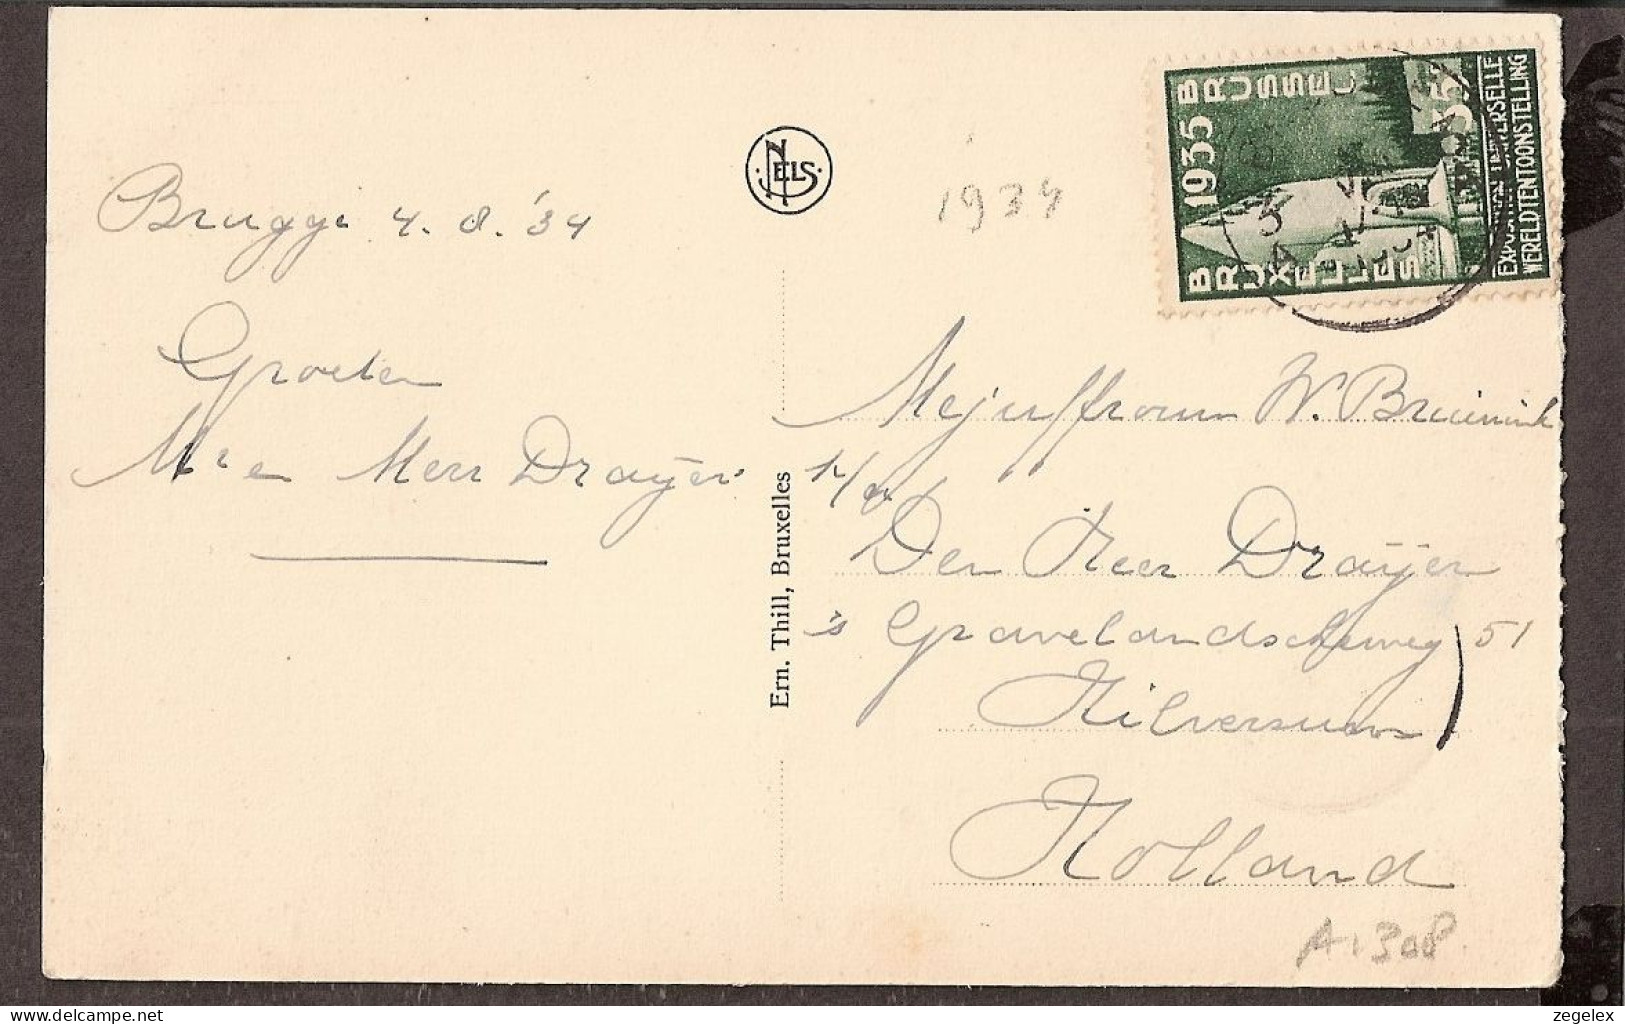 NELS
Brugge 4.8.'34
1934
1935 BRUSSEL 35c
BRUXELLES
EXPOSITION UNIVERSELLE
WERELDTENTOONSTELLING
Groeten
Mr en Merr Drayer
Ern. Thill, Bruxelles
Mejuffrouw W. Bruinink
p/a
Den Heer Drayer
's Gravelandscheweg 51
Hilversum
Holland
A.308
www.delcampe.net
zegelex